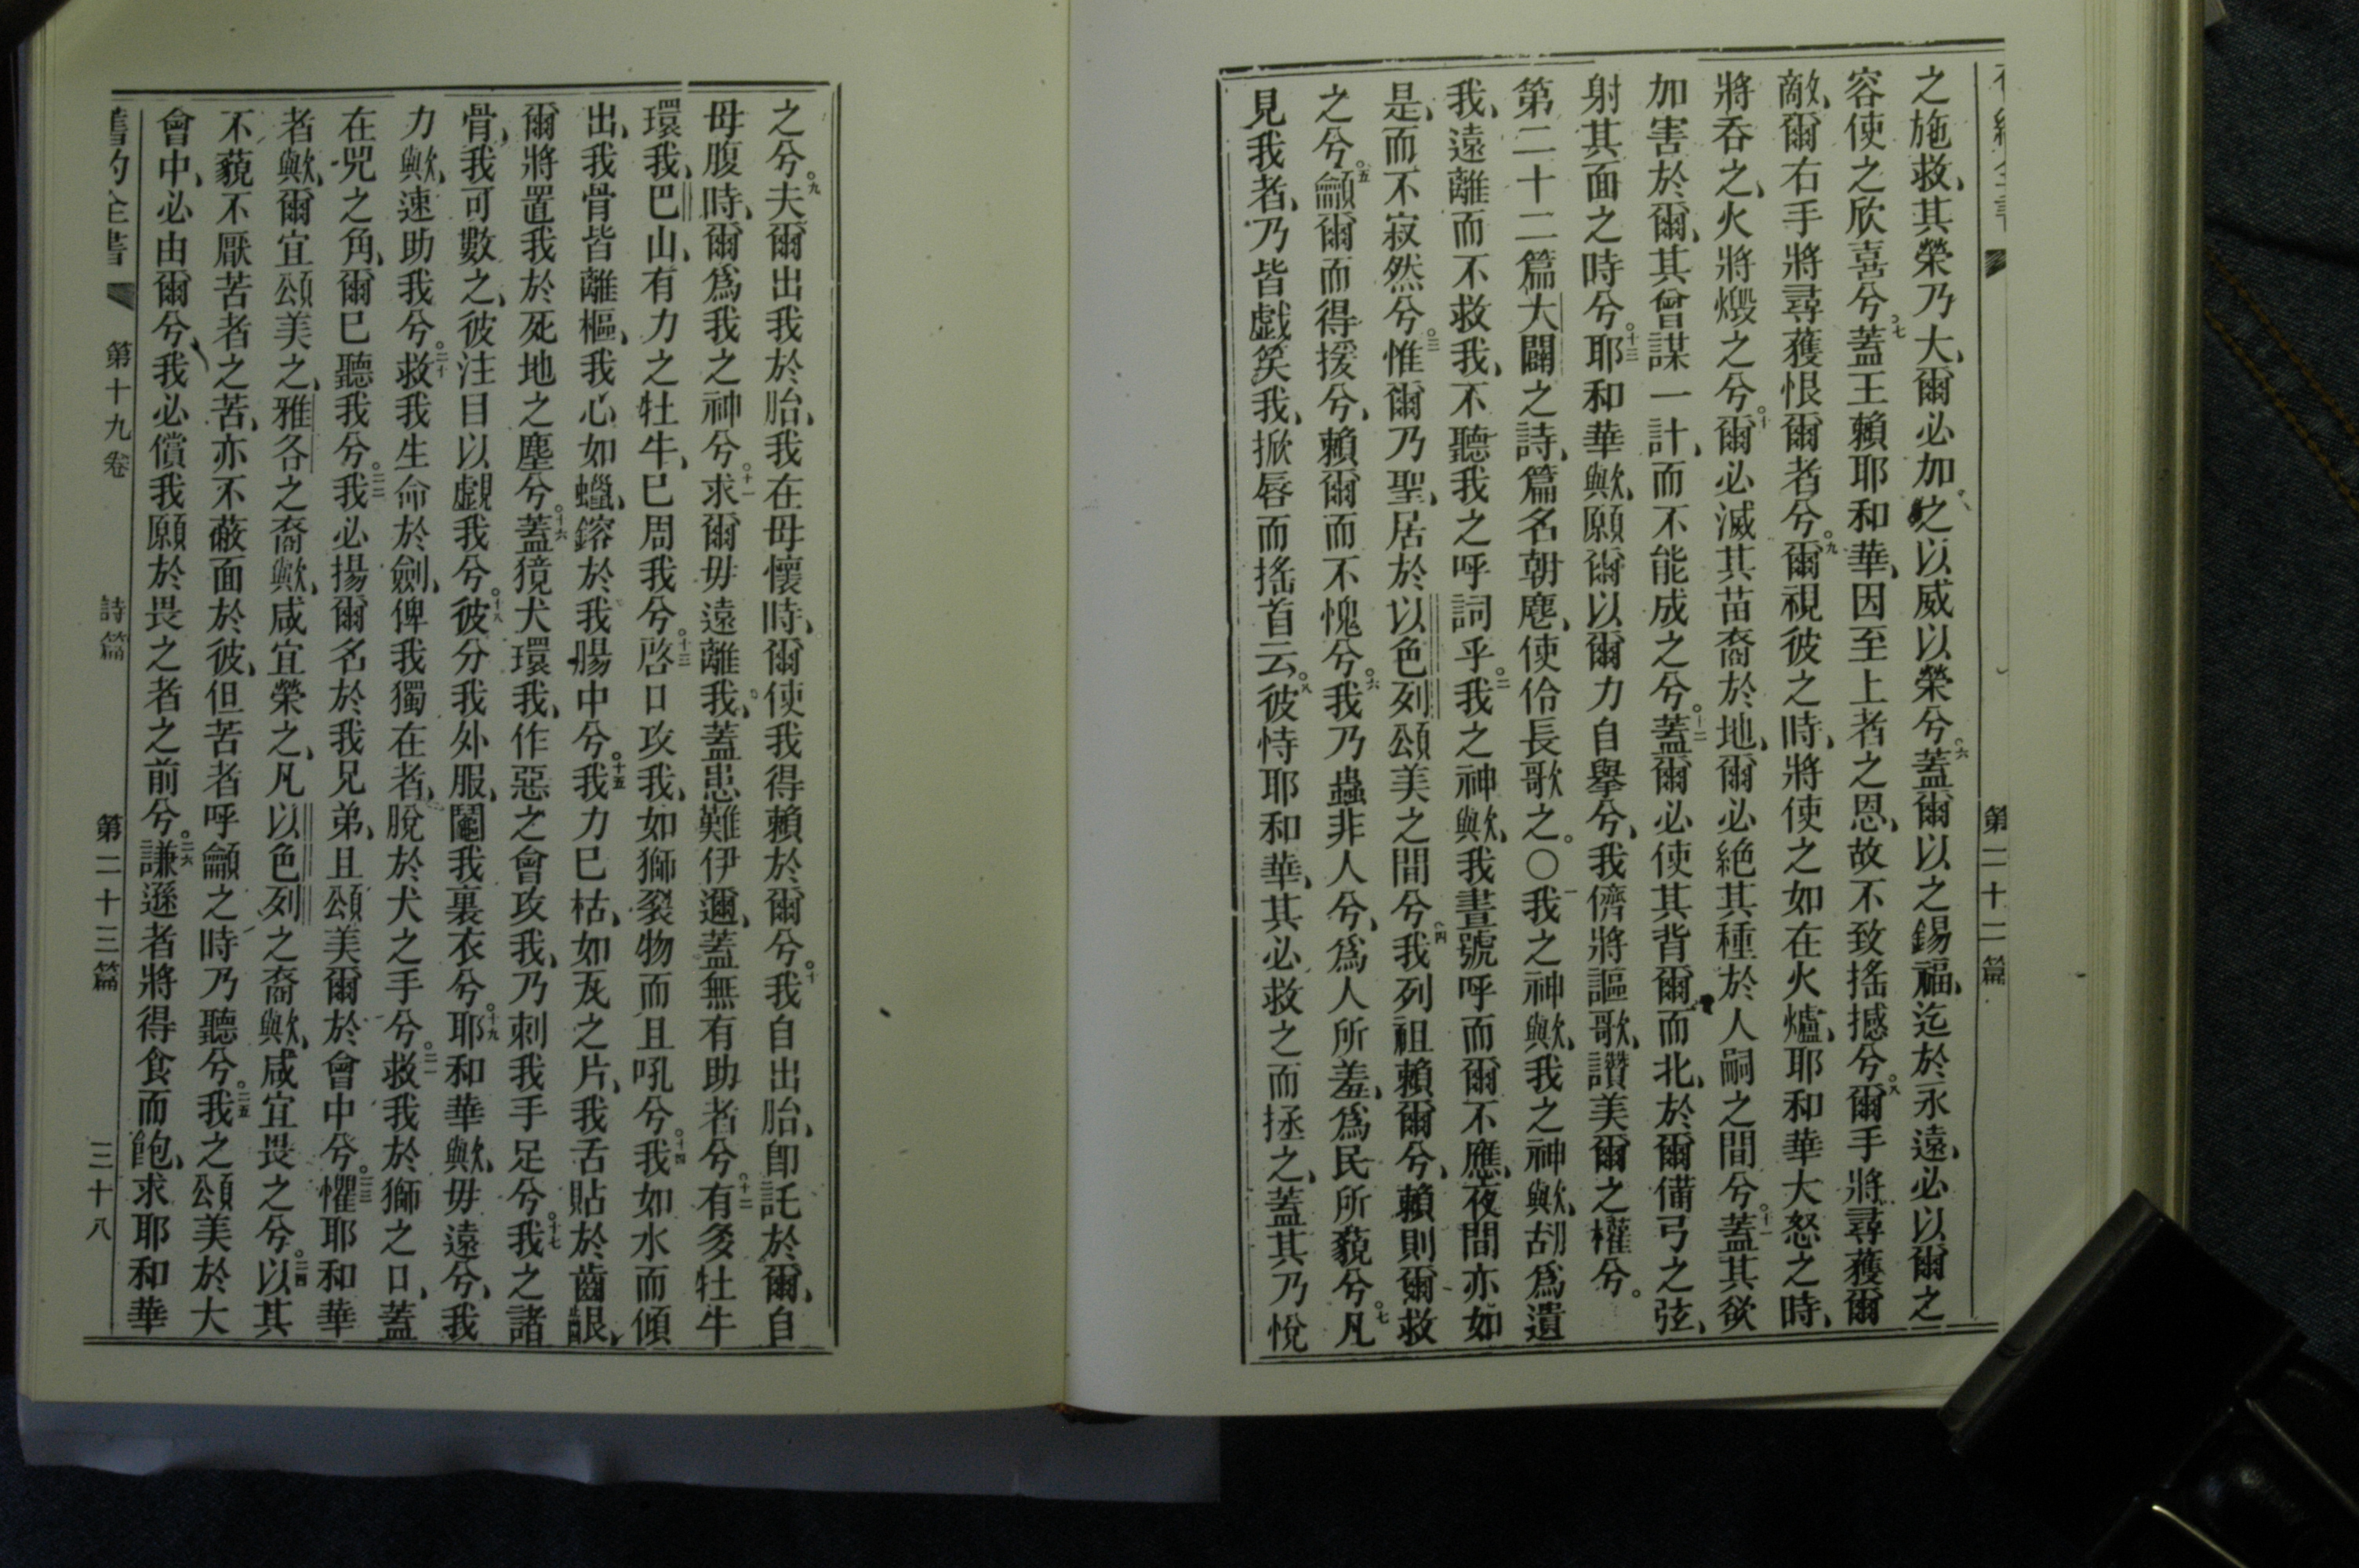 第二十二篇
之施救、其榮乃大、爾必加之以威以榮兮、六蓋爾以之錫福、迄於永遠、必以爾之
容使之欣喜兮。七蓋王賴耶和華、因至上者之恩、故不致搖撼兮。八爾手將尋獲爾
敵、爾右手將尋獲恨爾者兮。九爾視彼之時、將使之如在火爐、耶和華大怒之時、
將吞之、火將燬之兮。十爾必滅其苗裔於地、爾必絕其種於人嗣之間兮。十一蓋其欲
加害於爾、其曾謀一計、而不能成之兮。十二蓋爾必使其背爾而北、於爾備弓之弦、
射其面之時兮。十三耶和華歟、願爾以爾力自舉兮、我儕將謳歌、讚美爾之權兮。
第二十二篇大闢之詩、篇名朝麀、使伶長歌之。〇一我之神歟、我之神歟、胡爲遺
我、遠離而不救我、不聽我之呼詞乎。二我之神歟、我晝號呼而爾不應、夜間亦如
是、而不寂然兮。三惟爾乃聖、居於以色列頌美之間兮。四我列祖賴爾兮、賴則爾救
之兮。五籲爾而得援兮、賴爾而不愧兮。六我乃蟲非人兮、爲人所羞、爲民所藐兮。七凡
見我者、乃皆戲笑我、掀唇而搖首云、八彼恃耶和華、其必救之而拯之、蓋其乃悅
之兮。九夫爾出我於胎、我在母懷時、爾使我得賴於爾兮。十我自出胎、卽託於爾、自
母腹時、爾爲我之神兮。十一求爾毋遠離我、蓋患難伊邇、蓋無有助者兮。十二有多牡牛
環我、巴山有力之牡牛、已周我兮。十三啓口攻我、如獅裂物而且吼兮。十四我如水而傾
出、我骨皆離樞、我心如蠟、鎔於我腸中兮。十五我力已枯、如瓦之片、我舌貼於齒齦、
爾將置我於死地之塵兮。十六蓋獍犬環我、作惡之會攻我、乃刺我手足兮。十七我之諸
骨、我可數之、彼注目以覷我兮。十八彼分我外服、鬮我裏衣兮。十九耶和華歟、毋遠兮、我
力歟、速助我兮。二十救我生命於劍、俾我獨在者、脫於犬之手兮。二一救我於獅之口、蓋
在兕之角、爾已聽我兮。二二我必揚爾名於我兄弟、且頌美爾於會中兮。二三懼耶和華
者歟、爾宜頌美之、雅各之裔歟、咸宜榮之、凡以色列之裔歟、咸宜畏之兮。二四以其
不藐不厭苦者之苦、亦不蔽面於彼、但苦者呼籲之時乃聽兮。二五我之頌美於大
會中、必由爾兮、我必償我願於畏之者之前兮。二六謙遜者將得食而飽、求耶和華
舊約全書 第十九卷 詩篇 第二十三篇 三十八